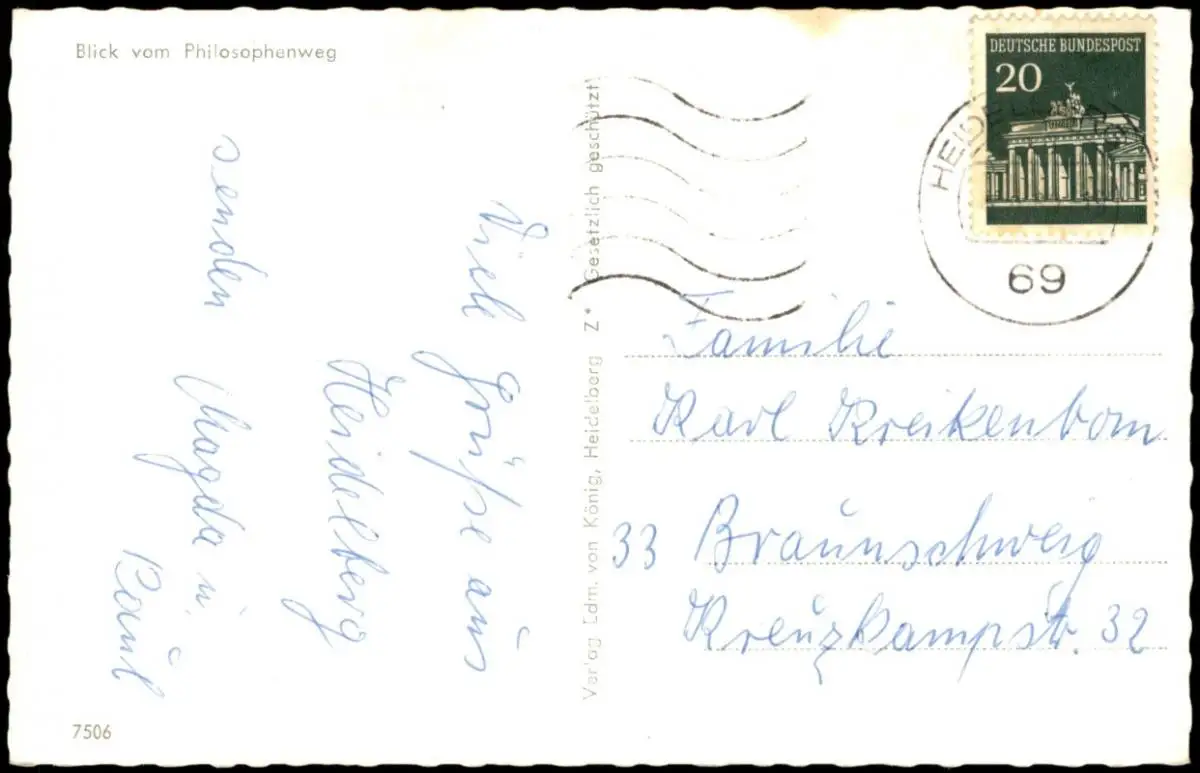 Blick vom Philosophenweg
Viele Grüße aus
Heidelberg
senden
Magda u.
Paul
7506
Verlag Edm. von König, Heidelberg Z* Gesetzlich geschützt
DEUTSCHE BUNDESPOST
20
69
Familie
Karl Kreikenbom
33 Braunschweig
Kreuzkampstr. 32